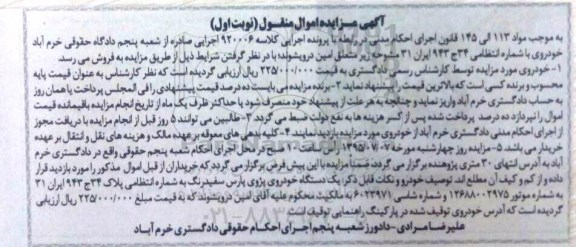 آگهی مزایده اموال منقول (نوبت اول)
به موجب مواد ۱۱۳ الی ۱۴۵ قانون اجرای احکام مدنی در رابطه با پرونده اجرایی کلاسه ۹۲۰۰۰۶ اجرایی صادره از شعبه پنجم دادگاه حقوقی خرم آباد
خودروی با شماره انتظامی ۳۴ج۹۴۳ ایران ۳۱ مشروحه زیر متعلق امین درویشوند با در نظر گرفتن شرایط ذیل از طریق مزایده به فروش می رسد.
۱-خودروی مورد مزایده توسط کارشناس رسمی دادگستری به قیمت ۲۲۵/۰۰۰/۰۰۰ ریال ارزیابی گردیده است که نظر کارشناس به عنوان قیمت پایه
محسوب و برنده کسی است که بالاترین قیمت را پیشنهاد نماید ۲-برنده مزایده می بایست ده درصد قیمت پیشنهادی را فی المجلس پرداخت یا همان روز
به حساب دادگستری خرم آباد واریز نماید و چنانچه به هر علت از پیشنهاد خود منصرف شود یا حداکثر ظرف یک ماه از تاریخ انجام مزایده باقیمانده قیمت
اموال را نپردازد ده درصد پرداخت شده پس از کسر هزینه ها به نفع دولت ضبط می گردد. ۳-طالبین می توانند ۵ روز قبل از انجام مزایده با دریافت مجوز
از اجرای احکام مدنی دادگستری خرم آباد از خودروی مورد مزایده بازدید نمایند. ۴-کلیه بدهی های معوقه بر عهده مالک و هزینه های نقل و انتقال بر عهده
خریدار می باشد. ۵-مزایده روز چهارشنبه مورخه ۱۳۹۵/۰۷/۰۷ از ساعت ۱۰ صبح در محل اجرای احکام شعبه پنجم حقوقی واقع در دادگستری خرم
آباد به آدرس انتهای ۳۰ متری پژوهنده برگزار می گردد. ضمناً مزایده با این پیش فرض برگزار می گردد که خریداران از قبل اموال مذکور را مورد بازدید قرار
داده و از کم و کیف آن مطلع اند. توصیف خودرو و نکات قابل ذکر: یک دستگاه خودروی پژوی پارس سفیدرنگ به شماره انتظامی پلاک ۳۴ج۹۴۳ ایران ۳۱
به شماره موتور ۱۲۶۸۸۰۰۲۹۷۵ و شماره شاسی ۶۰۲۳۹۷۱ به مالکیت محکوم علیه آقای امین درویشوند که به قیمت مبلغ ۲۲۵/۰۰۰/۰۰۰ ریال ارزیابی
گردیده است که آدرس خودروی توقیف شده در پارکینگ راهنمایی توقیف است.
علیرضا مرادی-دادورز شعبه پنجم اجرای احکام حقوقی دادگستری خرم آباد